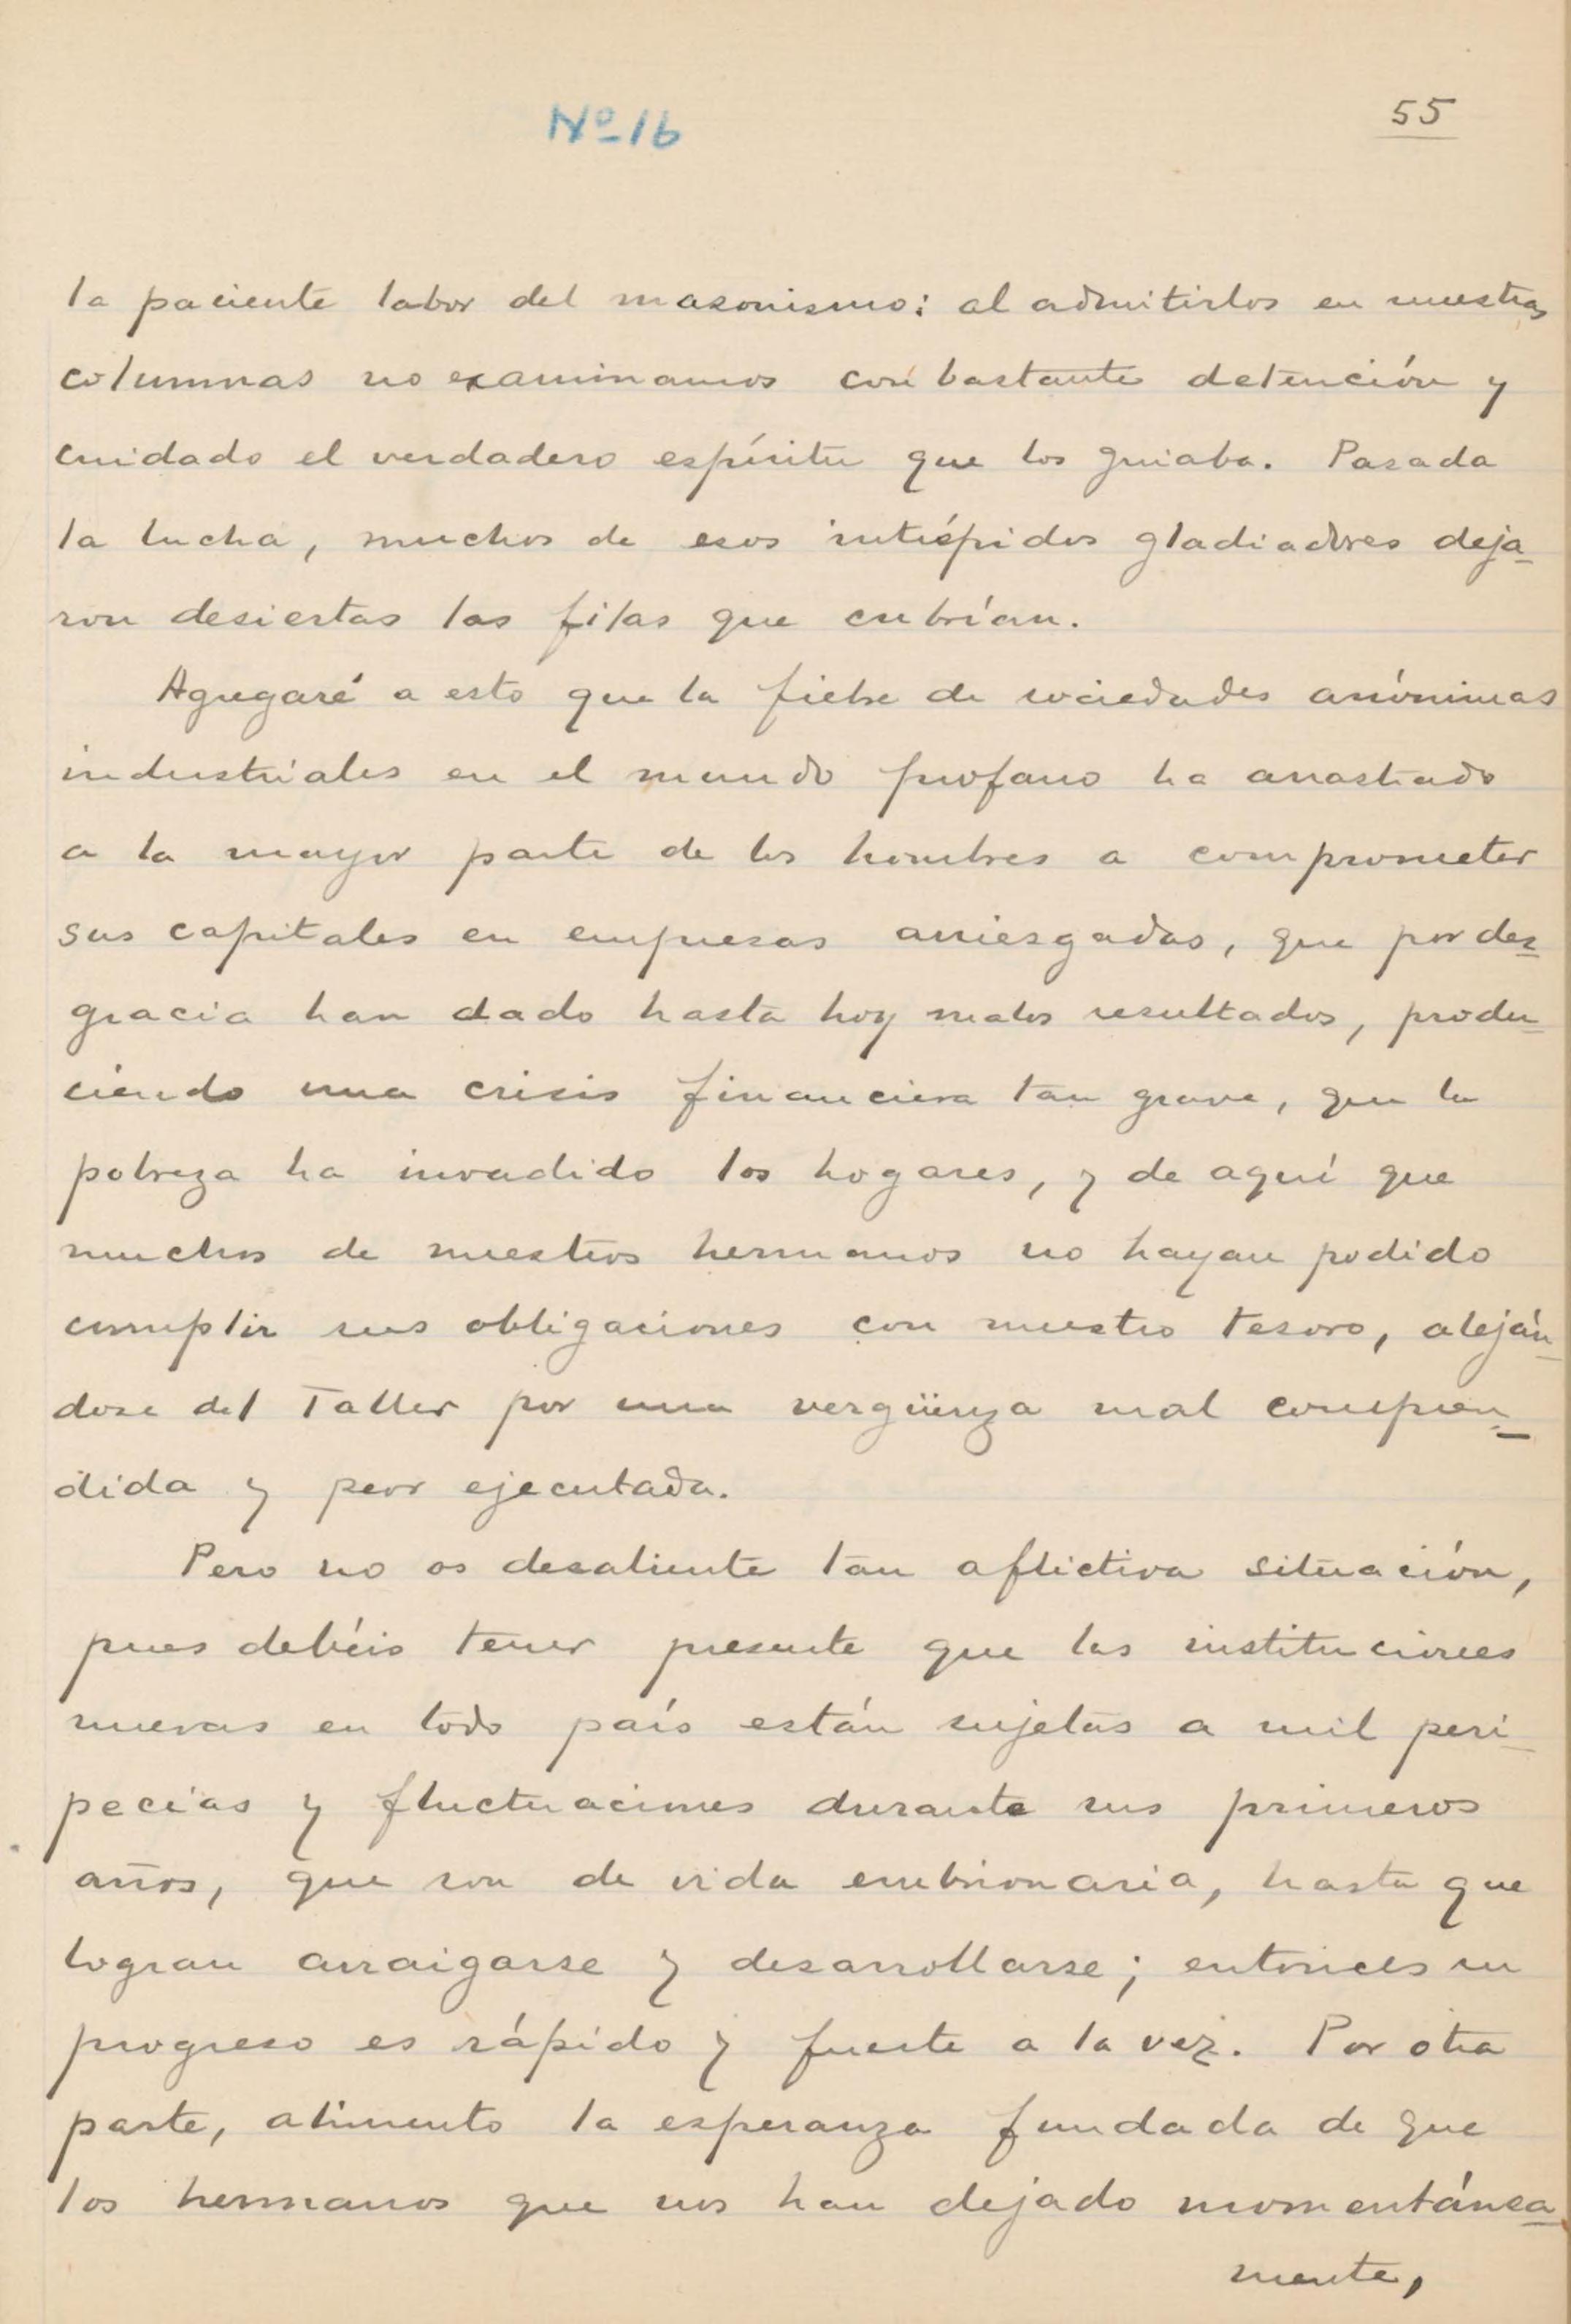 Nº 16
55
la paciente labor del masonismo: al admitirlos en nuestras
columnas no examinamos con bastante detención y
cuidado el verdadero espíritu que los guiaba. Pasada
la lucha, muchos de esos intrépidos gladiadores deja-
ron desiertas las filas que cubrían.
Agregaré a esto que la fiebre de sociedades anónimas
industriales en el mundo profano ha arrastrado
a la mayor parte de los hombres a comprometer
sus capitales en empresas arriesgadas, que por des-
gracia han dado hasta hoy malos resultados, produ-
ciendo una crisis financiera tan grave, que la
pobreza ha invadido los hogares, y de aquí que
muchos de nuestros hermanos no hayan podido
cumplir sus obligaciones con nuestro tesoro, aleján-
dose del Taller por una vergüenza mal compren-
dida y peor ejecutada.
Pero no os desaliente tan aflictiva situación,
pues debéis tener presente que las instituciones
nuevas en todo país están sujetas a mil peri-
pecias y fluctuaciones durante sus primeros
años, que son de vida embrionaria, hasta que
logran arraigarse y desarrollarse; entonces su
progreso es rápido y fuerte a la vez. Por otra
parte, alimento la esperanza fundada de que
los hermanos que nos han dejado momentánea-
mente,